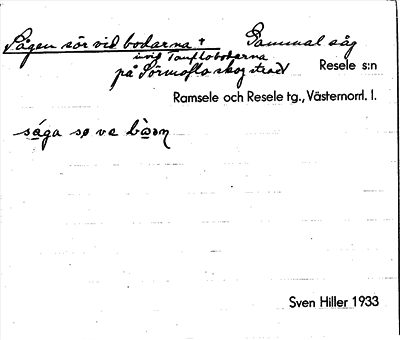 Sågen sör vid bodarna + Gammal såg
invid Tanfloboderna
på Sörmoflo skog strad
Resele s:n
Ramsele och Resele tg., Västernorrl. l.
sága sø ve bòɷn
Sven Hiller 1933